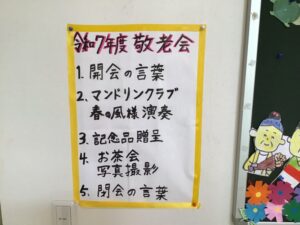 令和7年度 敬老会
1. 開会の言葉
2. マンドリンクラブ
春の風様演奏
3. 記念品贈呈
4. お茶会
写真撮影
5. 閉会の言葉